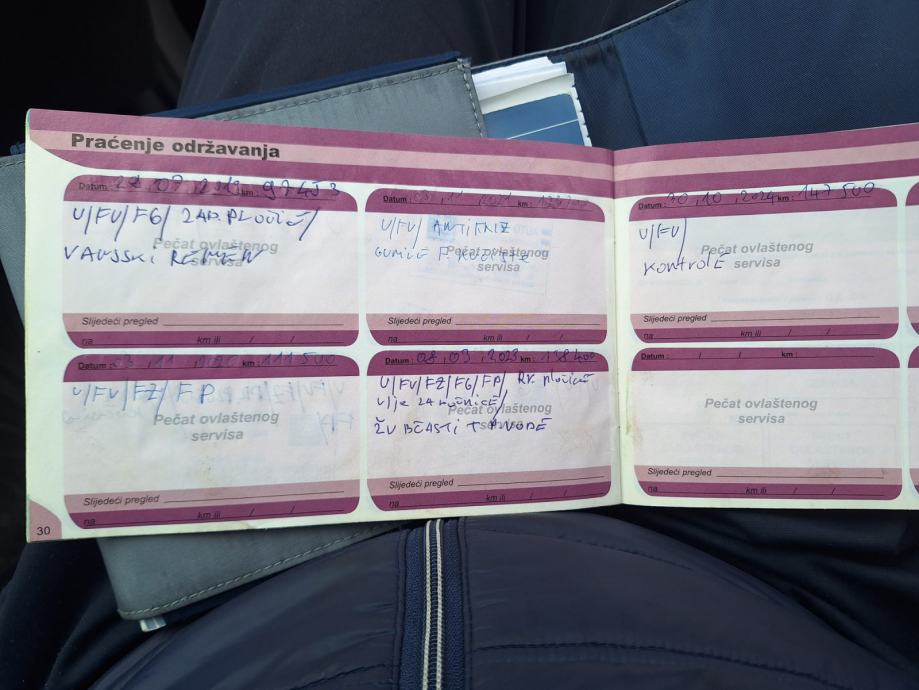 Praćenje održavanja
Datum : km : 97453
U/FU/FG/ ZAD. PLOČICE/
Pečat ovlaštenog
servisa
Slijedeći pregled
na km ili / /
Datum : km : 111500
U/FU/FZ/ FP
Pečat ovlaštenog
servisa
Slijedeći pregled
na km ili / /
30
Datum : 11 . 2021 km :
U/FU/ ANTIFRIZ
Pečat ovlaštenog
servisa
GUMICE
Slijedeći pregled
na km ili / /
Datum : 08 . 03 . 2023 km : 138400
U/FU/FZ/FG/FP/ RK. PLOČICE
Pečat ovlaštenog
servisa
ULJE ZA KOČNICE/
ZUPČASTI + P. VODE
Slijedeći pregled
na km ili / /
Datum : 10 . 2024 km : 147500
U/FU/
Pečat ovlaštenog
servisa
KONTROLE
Slijedeći pregled
na km ili / /
Datum : / / km :
Pečat ovlaštenog
servisa
Slijedeći pregled
na km ili / /